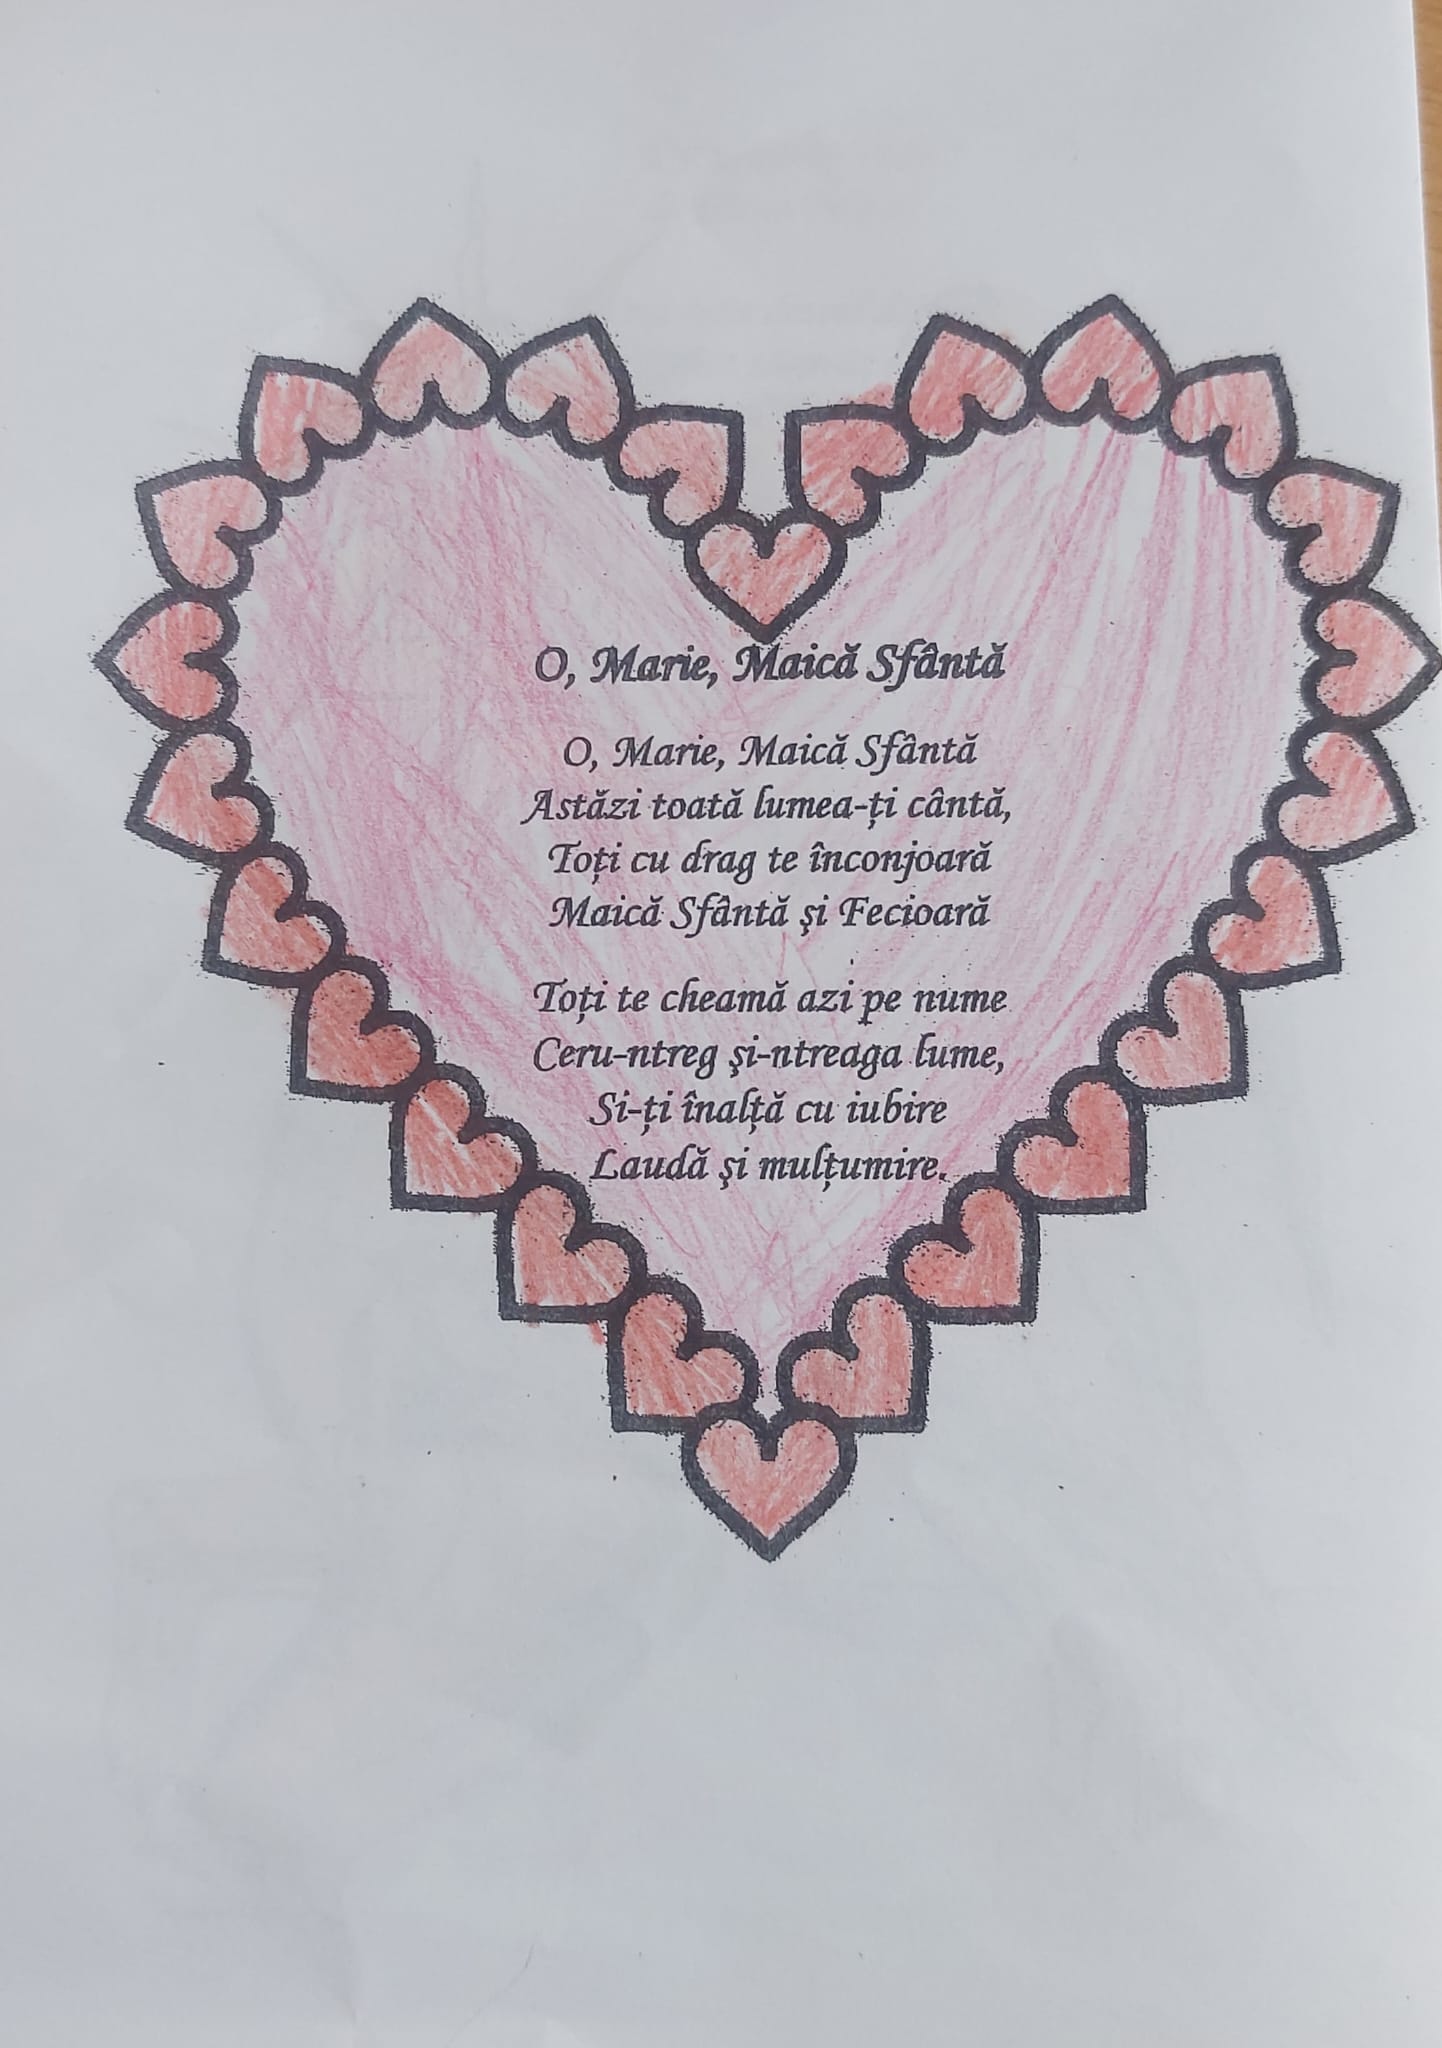 O, Marie, Maică Sfântă
O, Marie, Maică Sfântă
Astăzi toată lumea-ți cântă,
Toți cu drag te înconjoară
Maică Sfântă şi Fecioară
Toți te cheamă azi pe nume
Ceru-ntreg şi-ntreaga lume,
Si-ți înalță cu iubire
Laudă şi mulțumire.